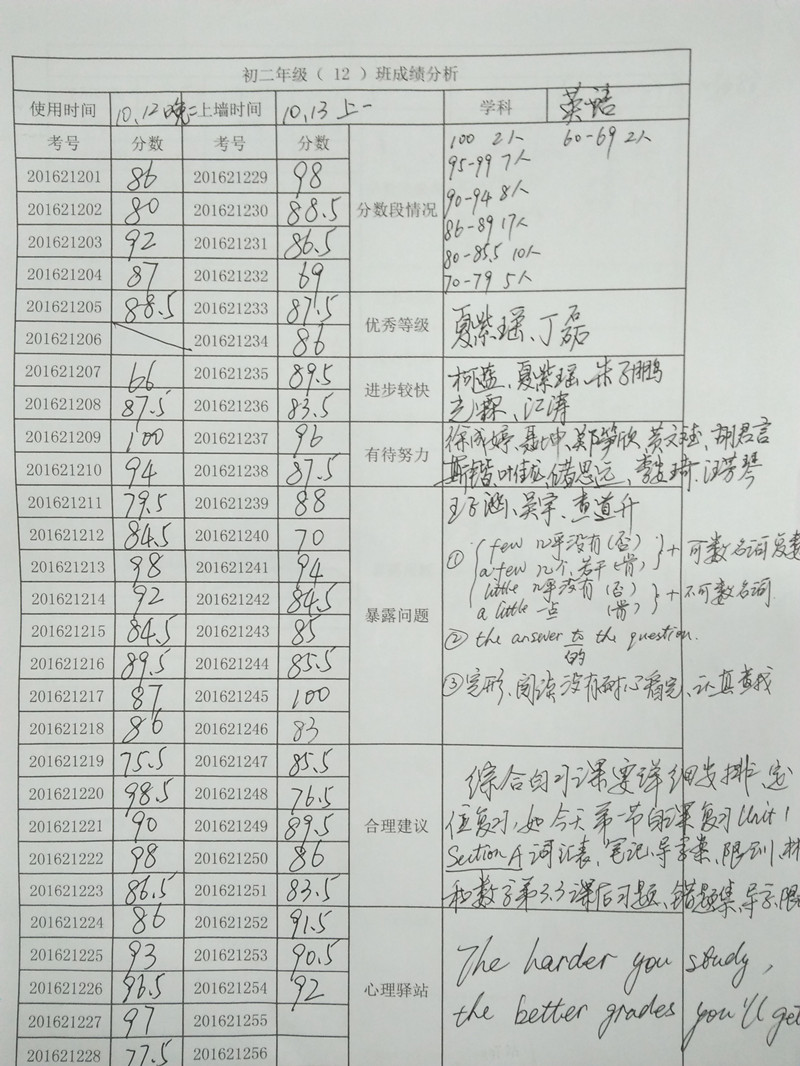 初二年级（ 12 ）班成绩分析
使用时间 10、12晚二 上墙时间 10、13 上一 学科 英语
考号 分数 考号 分数
201621201 86 201621229 98
201621202 80 201621230 88.5
201621203 92 201621231 86.5
201621204 87 201621232 69
分数段情况
100 2人 60-69 2人
95-99 7人
90-94 8人
86-89 17人
80-85.5 10人
70-79 5人
201621205 88.5 201621233 87.5
201621206 201621234 86
优秀等级 夏紫瑶、丁磊
201621207 66 201621235 89.5
201621208 87.5 201621236 83.5
进步较快 柯蓝、夏紫瑶、朱子鹏
霖、江涛
201621209 100 201621237 96
201621210 94 201621238 87.5
有待努力 徐成婷、聂坤、郑筝欣、黄文、胡君言
叶佳、储思远、李琦、汪芳琴
王子涵、吴宇、查道升
201621211 79.5 201621239 88
201621212 84.5 201621240 70
201621213 98 201621241 94
201621214 92 201621242 84.5
201621215 84.5 201621243 85
201621216 89.5 201621244 85.5
201621217 87 201621245 100
201621218 86 201621246 83
暴露问题
① few 几乎没有(否)
a few 几个,若干(肯) + 可数名词复数
little 几乎没有 (否)
a little 一点 (肯) + 不可数名词
② the answer to the question.
的
③完形、阅读没有耐心稳定、认真查找
201621219 75.5 201621247 85.5
201621220 98.5 201621248 76.5
201621221 90 201621249 89.5
201621222 98 201621250 86
201621223 86.5 201621251 83.5
合理建议
综合自习课要详细安排 定
位复习,如今天第一节自课复习Unit 1
Section A 词汇表、笔记、导学案、限时训
和数学第3.3课后习题、错题集、导学、限
201621224 86 201621252 91.5
201621225 93 201621253 90.5
201621226 96.5 201621254 92
201621227 97 201621255
201621228 77.5 201621256
心理驿站
The harder you study,
the better grades you'll get